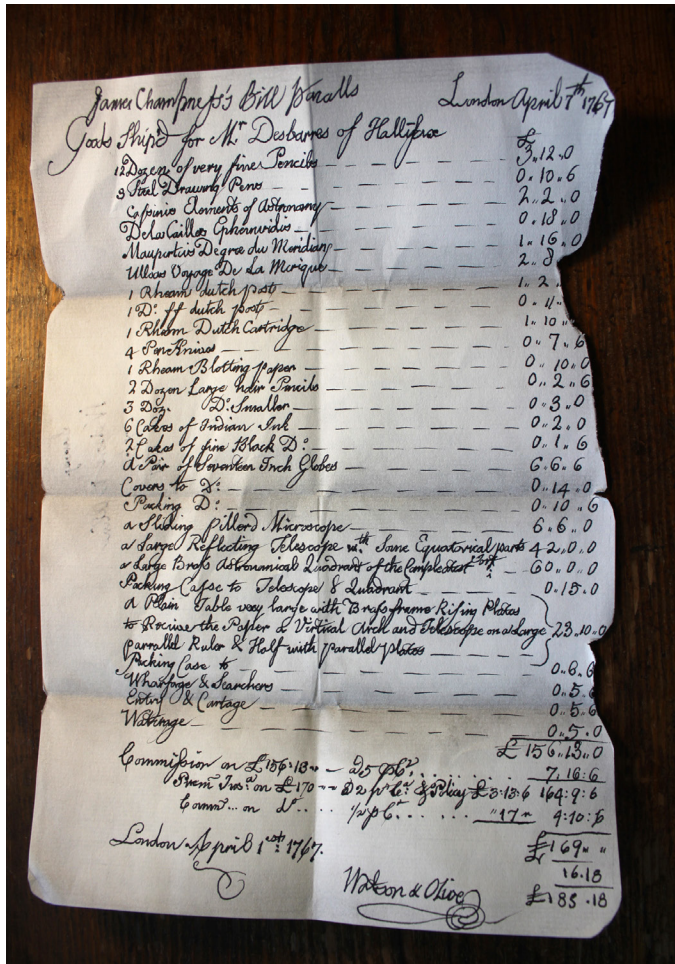 James Champness's Bill Paralls London April 7th 1767
Goods Ship'd for Mr Desbarres of Hallifax
£
12 Dozen of very fine Pencils 3,,12,,0
3 Steel Drawing Pens 0,,10,,6
Cassinis Elements of Astronomy 2,,2,,0
De La Cailles Ephemeridis 0,,18,,0
Maupertuis Degree du Meridian 1,,16,,0
Ulloas Voyage De La Merique 2,,8
1 Rheam dutch post 1,,2
1 Do: ff dutch post 0,,11
1 Rheam Dutch Cartridge 1,,10
4 PenKnives 0,,7,,6
1 Rheam Blotting paper 0,,10,,0
2 Dozen Large hair Pencils 0,,2,,6
3 Doz. Do: Smaller 0,,3,,0
6 Cakes of Indian Ink 0,,2,,0
2 Cakes of fine Black Do: 0,,1,,6
a Pair of Seventeen Inch Globes 6,,6,,6
Covers to Do: 0,,14,,0
Packing D: 0,,10,,6
a Sliding pillord Microscope 6,,6,,0
a Large Reflecting Telescope wth Some Equatorical parts 42,,0,,0
a Large Brass Astronomical Quadrant of the Compleatest sort 60,,0,,0
Packing Casse to Telescope & Quadrant 0,,15,,0
a Plain Table very large with Brass frame Rising Plates
to Recieve the Paper a Virtical Arch and Telescope on a Large 23,,10,,0
parrallel Ruler & Half with parallel plates
Packing Case to 0,,6,,6
Wharfage & Searchers 0,,5,,6
Entry & Cartage 0,,5,,6
Waterage 0,,5,,0
£ 156,,13,,0
Commission on £156:13 a 5 p Ct. 7,,16:6
Prem Insa on £170 D 2 p Ct & Policy £3:13:6 164:9:6
Comm... on do 1/2 p Ct "17" 9:10:6
£169 " "
London April 1767. 16.18
Watson & Olive £185.18